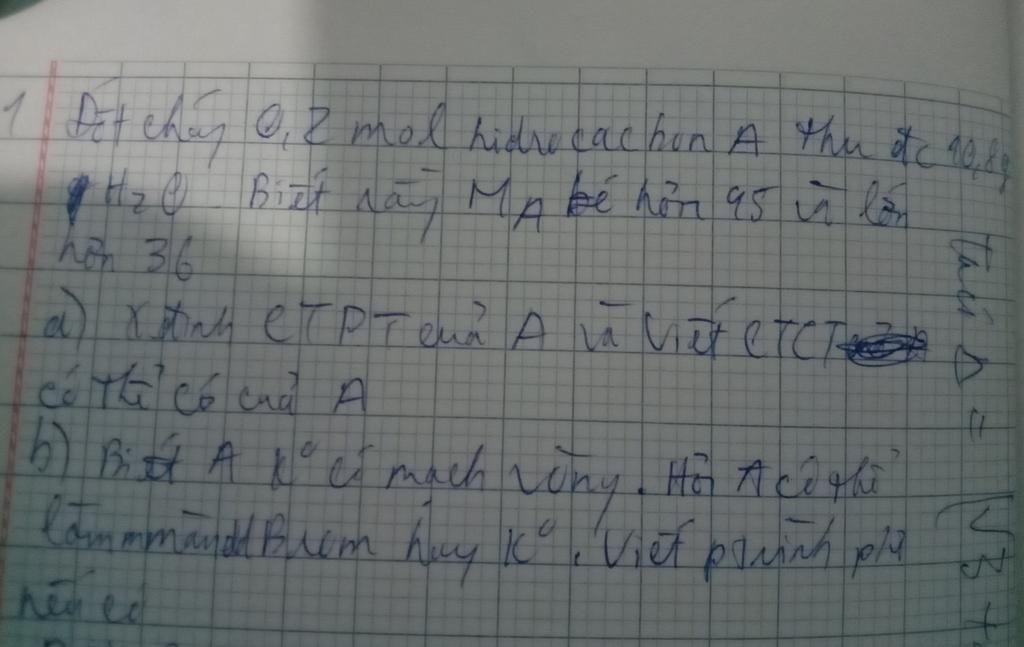 1 Đốt cháy 0,2 mol hidrocacbon A thu đc 10,8g
H2O Biết rằng MA bé hơn 95 và lớn
hơn 36
a) Xđịnh CTPT của A và Viết CTCT
có thể có của A
b) Biết A K° có mạch vòng. Hỏi A có thể
làm màu dd Brom hay K°. Viết ptrình plư
nếu có